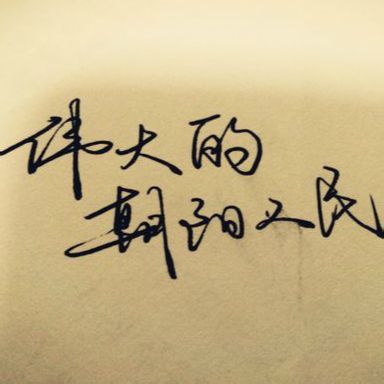 伟大的
朝阳人民